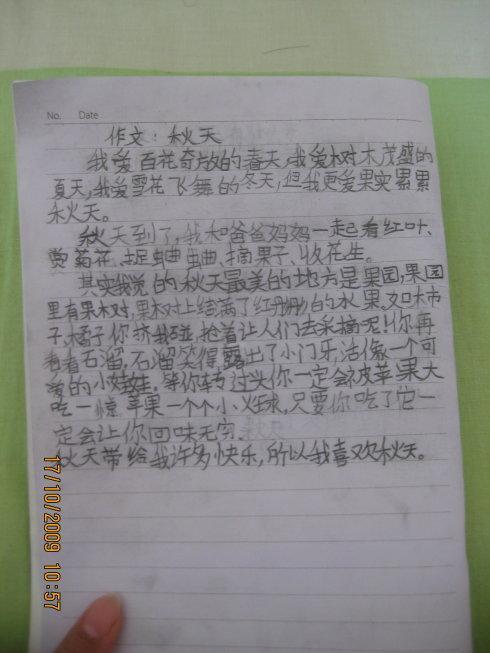 No. Date
作文：秋天
我爱百花奇放的春天，我爱树木茂盛的
夏天，我爱雪花飞舞的冬天，但我更爱果实累累
秋天。
秋天到了，我和爸爸妈妈一起看红叶、
赏菊花、捉蛐蛐、摘果子、收花生。
其实我觉的秋天最美的地方是果园，果园
里有果树，果树上结满了红彤彤的水果，如柿
子，橘子你挤我碰，抢着让人们去采摘呢！你再
看看石溜，石溜笑得露出了小门牙，活像一个可
爱的小娃娃。等你转过头你一定会被苹果大
吃一惊，苹果一个个小火球，只要你吃了它一
定会让你回味无穷。
秋天带给我许多快乐，所以我喜欢秋天。
17/10/2009 10:57